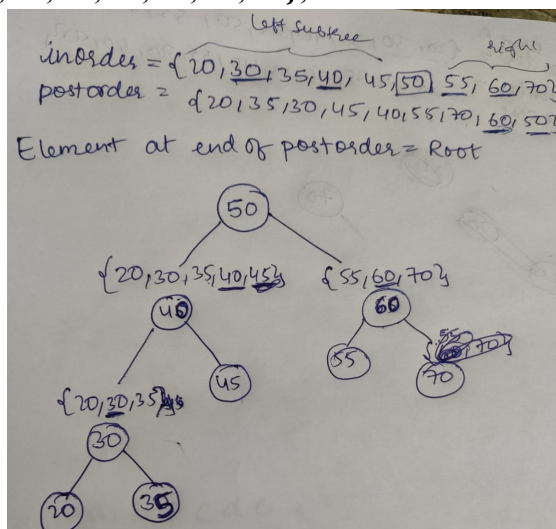 left subtree
right
inorder = {20,30,35,40, 45,50 55, 60,70}
postorder =
{20,35,30,45,40,55,70,60,50}
Element at end of postorder = Root
50
{20,30,35,40,45} {55,60,70}
40 60
55
45 55 70
{20,30,35}
30
20 35